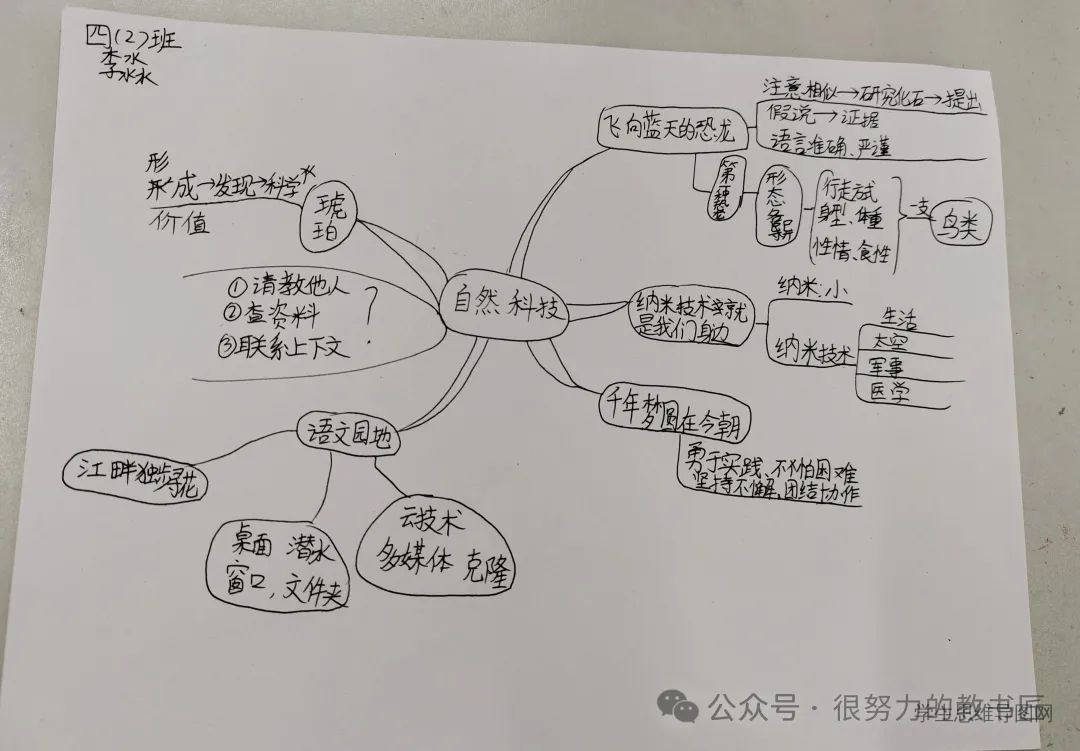 四(2)班
李水
子水水
自然 科技
飞向蓝天的恐龙
注意相似→研究化石→提出
假说→证据
语言准确、严谨
第一种恐龙
形态各异
行走方式
身型、体重
性情、食性
一支
鸟类
纳米技术就
是我们身边
纳米:小
纳米技术
生活
太空
军事
医学
千年梦圆在今朝
勇于实践、不怕困难
坚持不懈,团结协作
语文园地
云技术
多媒体 克隆
桌面 潜水
窗口,文件夹
江畔独步寻花
①请教他人
②查资料
③联系上下文
?
琥
珀
形
形成→发现→科学
价值
公众号·很努力的教书匠
学生思维导图网